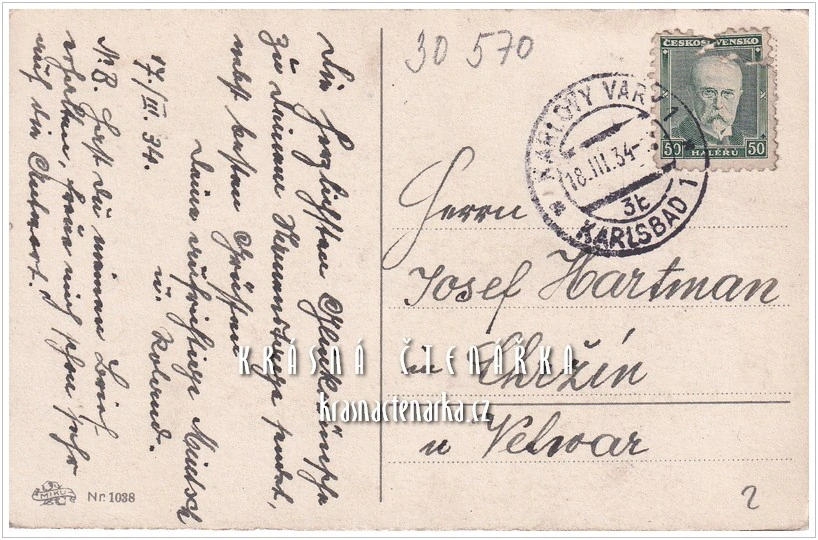 30 570
ČESKOSLOVENSKO
50 HALÉRŮ 50
KARLOVY VARY 1
18.III.34
3t
KARLSBAD 1
Herrn
Josef Hartman
in Chržín
u Velwar
Die herzlichsten Glückwünsche
zu Deinem Namenstage sendet,
mit besten Grüßen
Deine aufrichtige
u. Roland.
17./III. 34.
NB. Hast Du meinen Brief
erhalten, freue mich schon sehr
auf die Antwort.
KRÁSNÁ ČTENÁŘKA
krasnactenarka.cz
MIKU
Nr. 1038
2